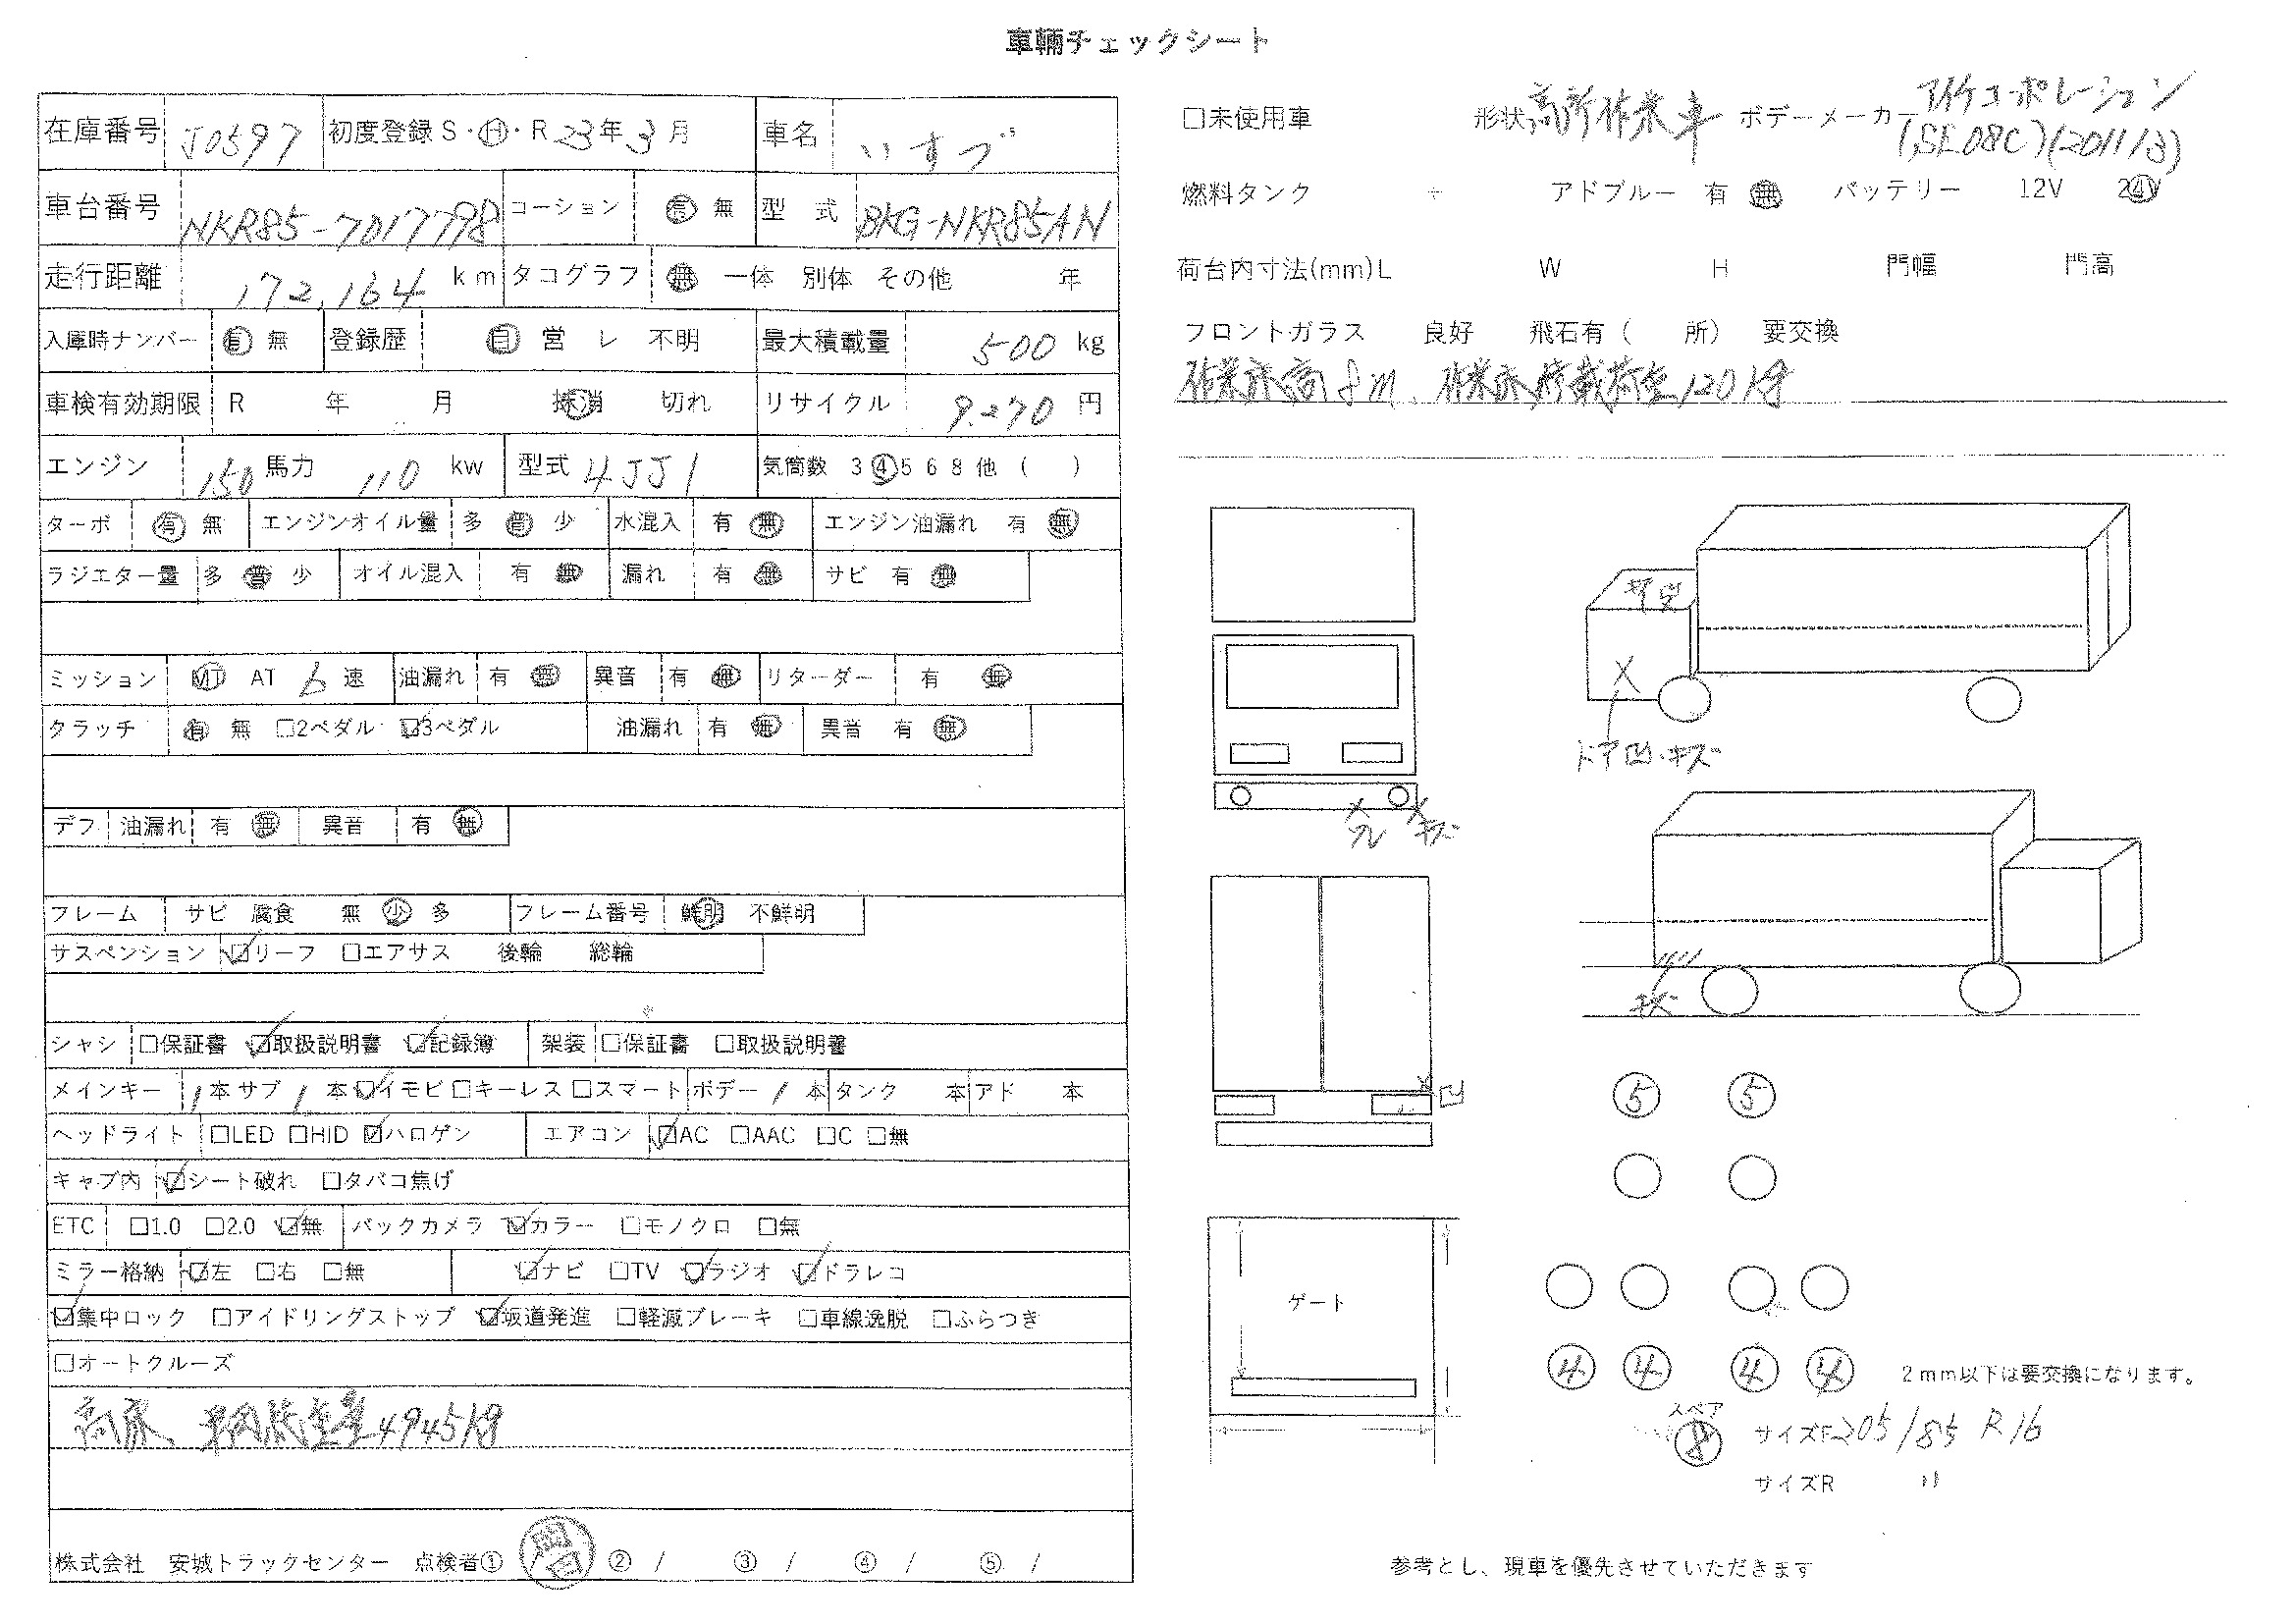 車輛チェックシート
在庫番号 J0597 初度登録 S・H・R 23年 3月 車名 いすゞ
車台番号 NKR85-7017798 コーション 有 無 型式 BKG-NKR85AN
走行距離 172,164 km タコグラフ 無 一体 別体 その他 年
入庫時ナンバー 有 無 登録歴 自 営 レ 不明 最大積載量 500 kg
車検有効期限 R 年 月 抹消 切れ リサイクル 9.270 円
エンジン 150 馬力 110 kw 型式 4JJ1 気筒数 3 4 5 6 8 他 ( )
ターボ 有 無 エンジンオイル量 多 普 少 水混入 有 無 エンジン油漏れ 有 無
ラジエター量 多 普 少 オイル混入 有 無 漏れ 有 無 サビ 有 無
ミッション MT AT 6 速 油漏れ 有 無 異音 有 無 リターダー 有 無
クラッチ 有 無 □2ペダル ☑3ペダル 油漏れ 有 無 異音 有 無
デフ 油漏れ 有 無 異音 有 無
フレーム サビ 腐食 無 少 多 フレーム番号 鮮明 不鮮明
サスペンション ☑リーフ □エアサス 後輪 総輪
シャシ □保証書 ☑取扱説明書 ☑記録簿 架装 □保証書 □取扱説明書
メインキー 1 本 サブ 1 本 ☑イモビ □キーレス □スマート ボデー 1 本 タンク 本 アド 本
ヘッドライト □LED □HID ☑ハロゲン エアコン ☑AC □AAC □C □無
キャブ内 ☑シート破れ □タバコ焦げ
ETC □1.0 □2.0 ☑無 バックカメラ ☑カラー □モノクロ □無
ミラー格納 ☑左 □右 □無 ☑ナビ □TV ☑ラジオ ☑ドラレコ
☑集中ロック □アイドリングストップ ☑坂道発進 □軽減ブレーキ □車線逸脱 □ふらつき
□オートクルーズ
高床、車両総重量4945kg
株式会社 安城トラックセンター 点検者① / ② / ③ / ④ / ⑤ /
□未使用車 形状 高所作業車 ボデーメーカー アイチコーポレーション
(SE08C)(2011/3)
燃料タンク アドブルー 有 無 バッテリー 12V 24V
荷台内寸法(mm)L W H 門幅 門高
フロントガラス 良好 飛石有 ( 所) 要交換
作業床高8m、作業床積載荷重120kg
X
ドア凹・キズ
X X
ワレ キズ
キズ
X 凹
ゲート
5 5
4 4 4 4 2mm以下は要交換になります。
スペア
8 サイズF 205/85 R16
サイズR 〃
参考とし、現車を優先させていただきます